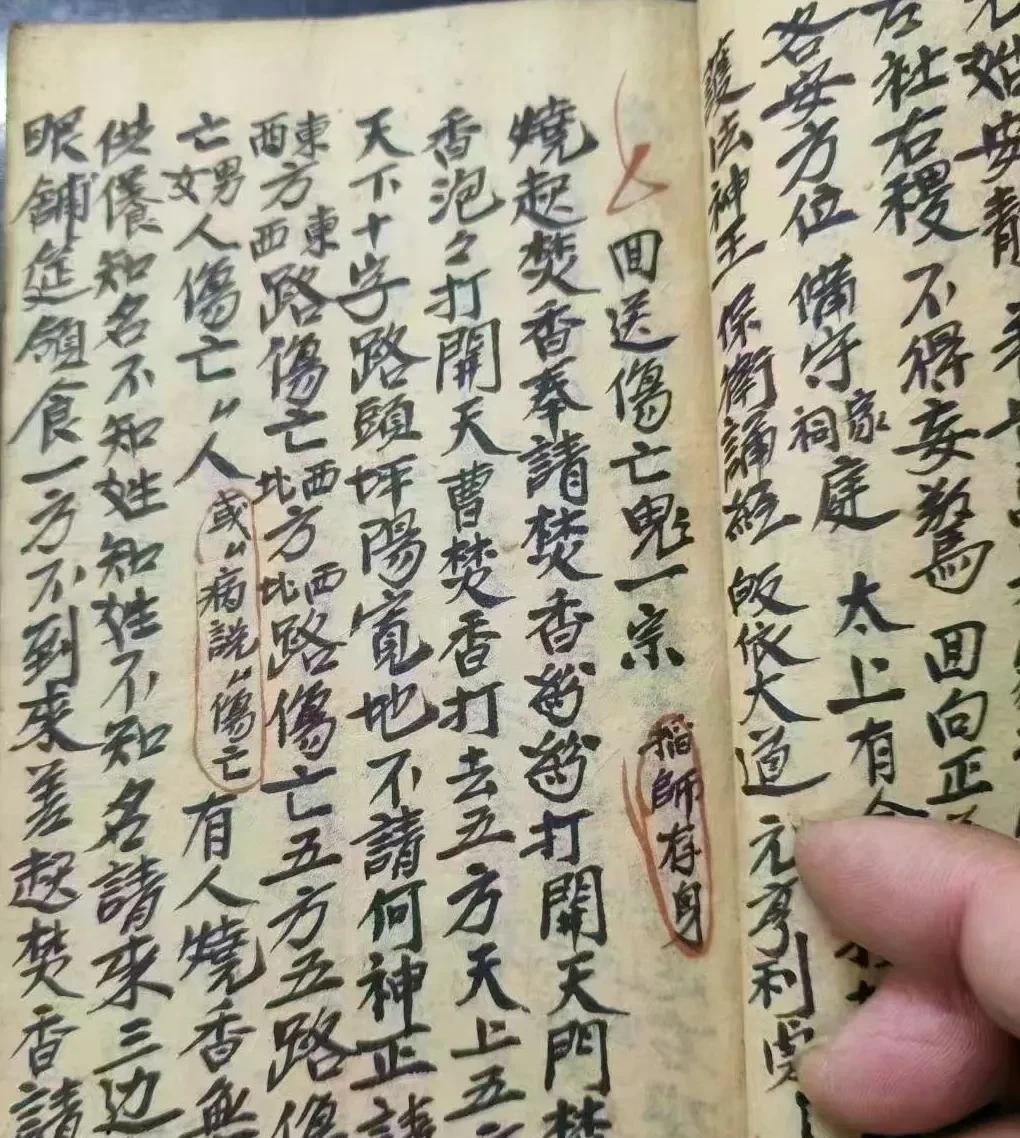 元始安
左社右稷 不得妄驚 回向正
各安方位 備守家祠庭 太上有
護法神王 保衛誦經 皈依大道 元亨利
回送傷亡鬼一宗 師存身
燒起焚香奉請焚香 打開天門焚
香泡々打開天曹焚香打去五方天上五
天下十字路頭坪陽寬地不請何神正請
東西方東西路傷亡西北方西北路傷亡五方五路傷
亡男女人傷亡〃人 或〃病說〃傷亡 有人燒香無
供養知名不知姓知姓不知名請來三边
眼舖筵領食一方不到來差起焚香請